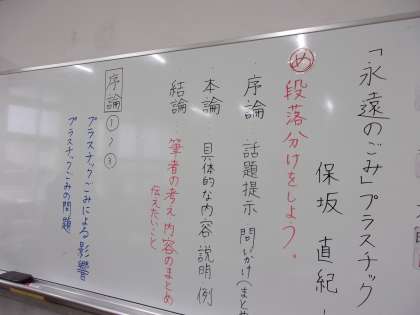 「永遠のごみ」プラスチック
保坂 直紀
め 段落分けをしよう。
・序論 話題提示 問いかけ(まとめ
・本論 具体的な内容 説明 例
・結論 筆者の考え 内容のまとめ
伝えたいこと
序論 ①~③
プラスチックごみによる影響
プラスチックごみの問題